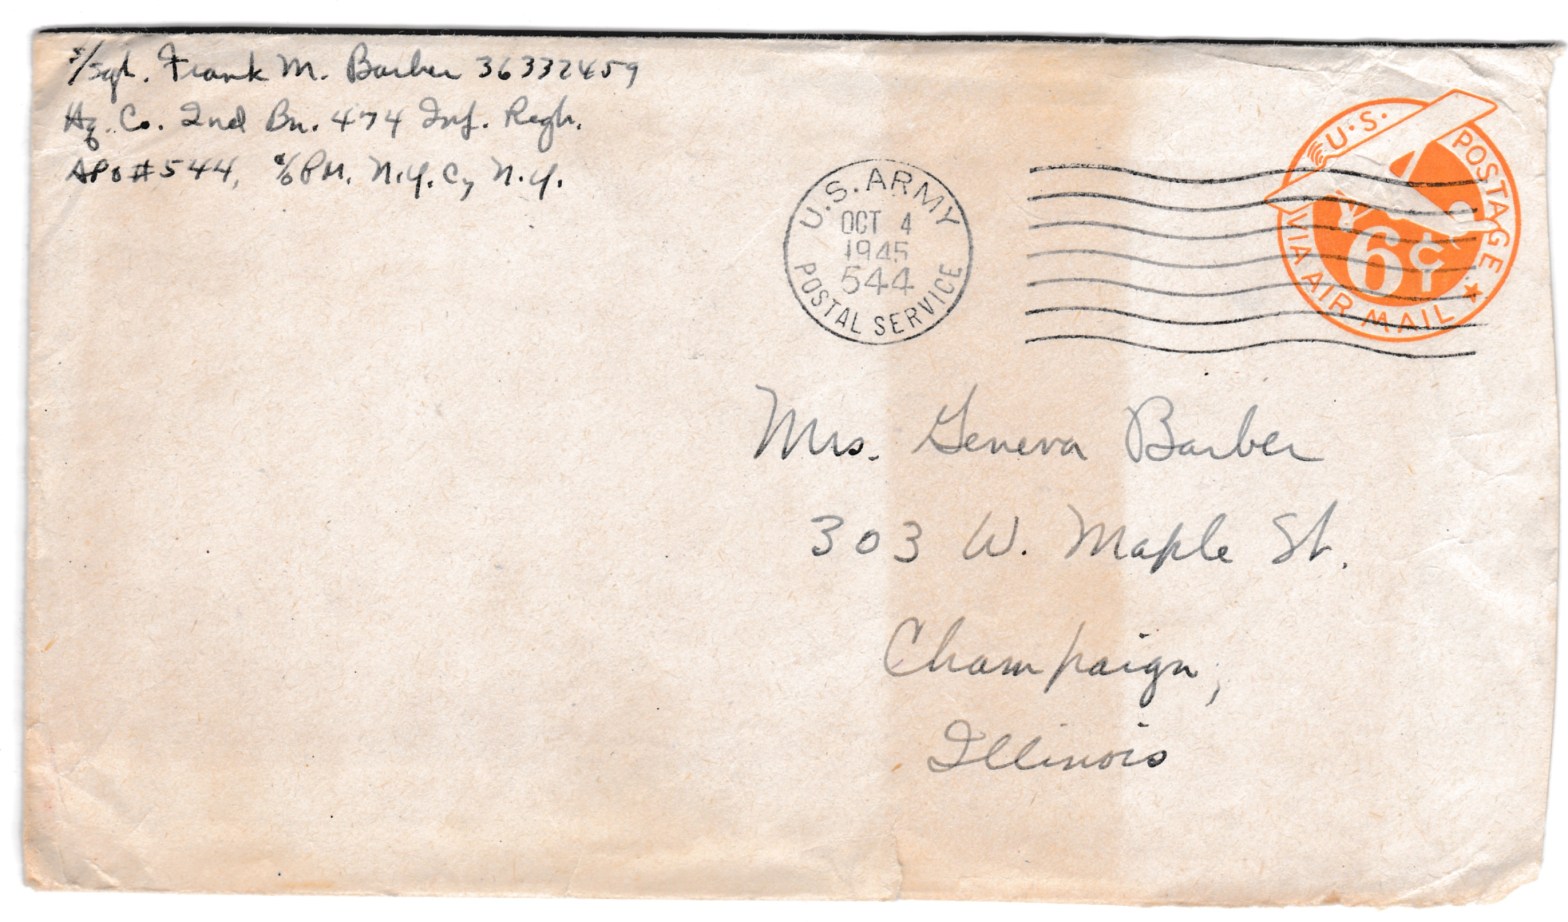 S/Sgt. Frank M. Barber 36332459
Hq. Co. 2nd Bn. 474 Inf. Regt.
APO #544, c/o PM. N.Y.C, N.Y.
U.S. ARMY
OCT 4
1945
544
POSTAL SERVICE
U.S. POSTAGE
6¢
VIA AIR MAIL
Mrs. Geneva Barber
303 W. Maple St.
Champaign,
Illinois